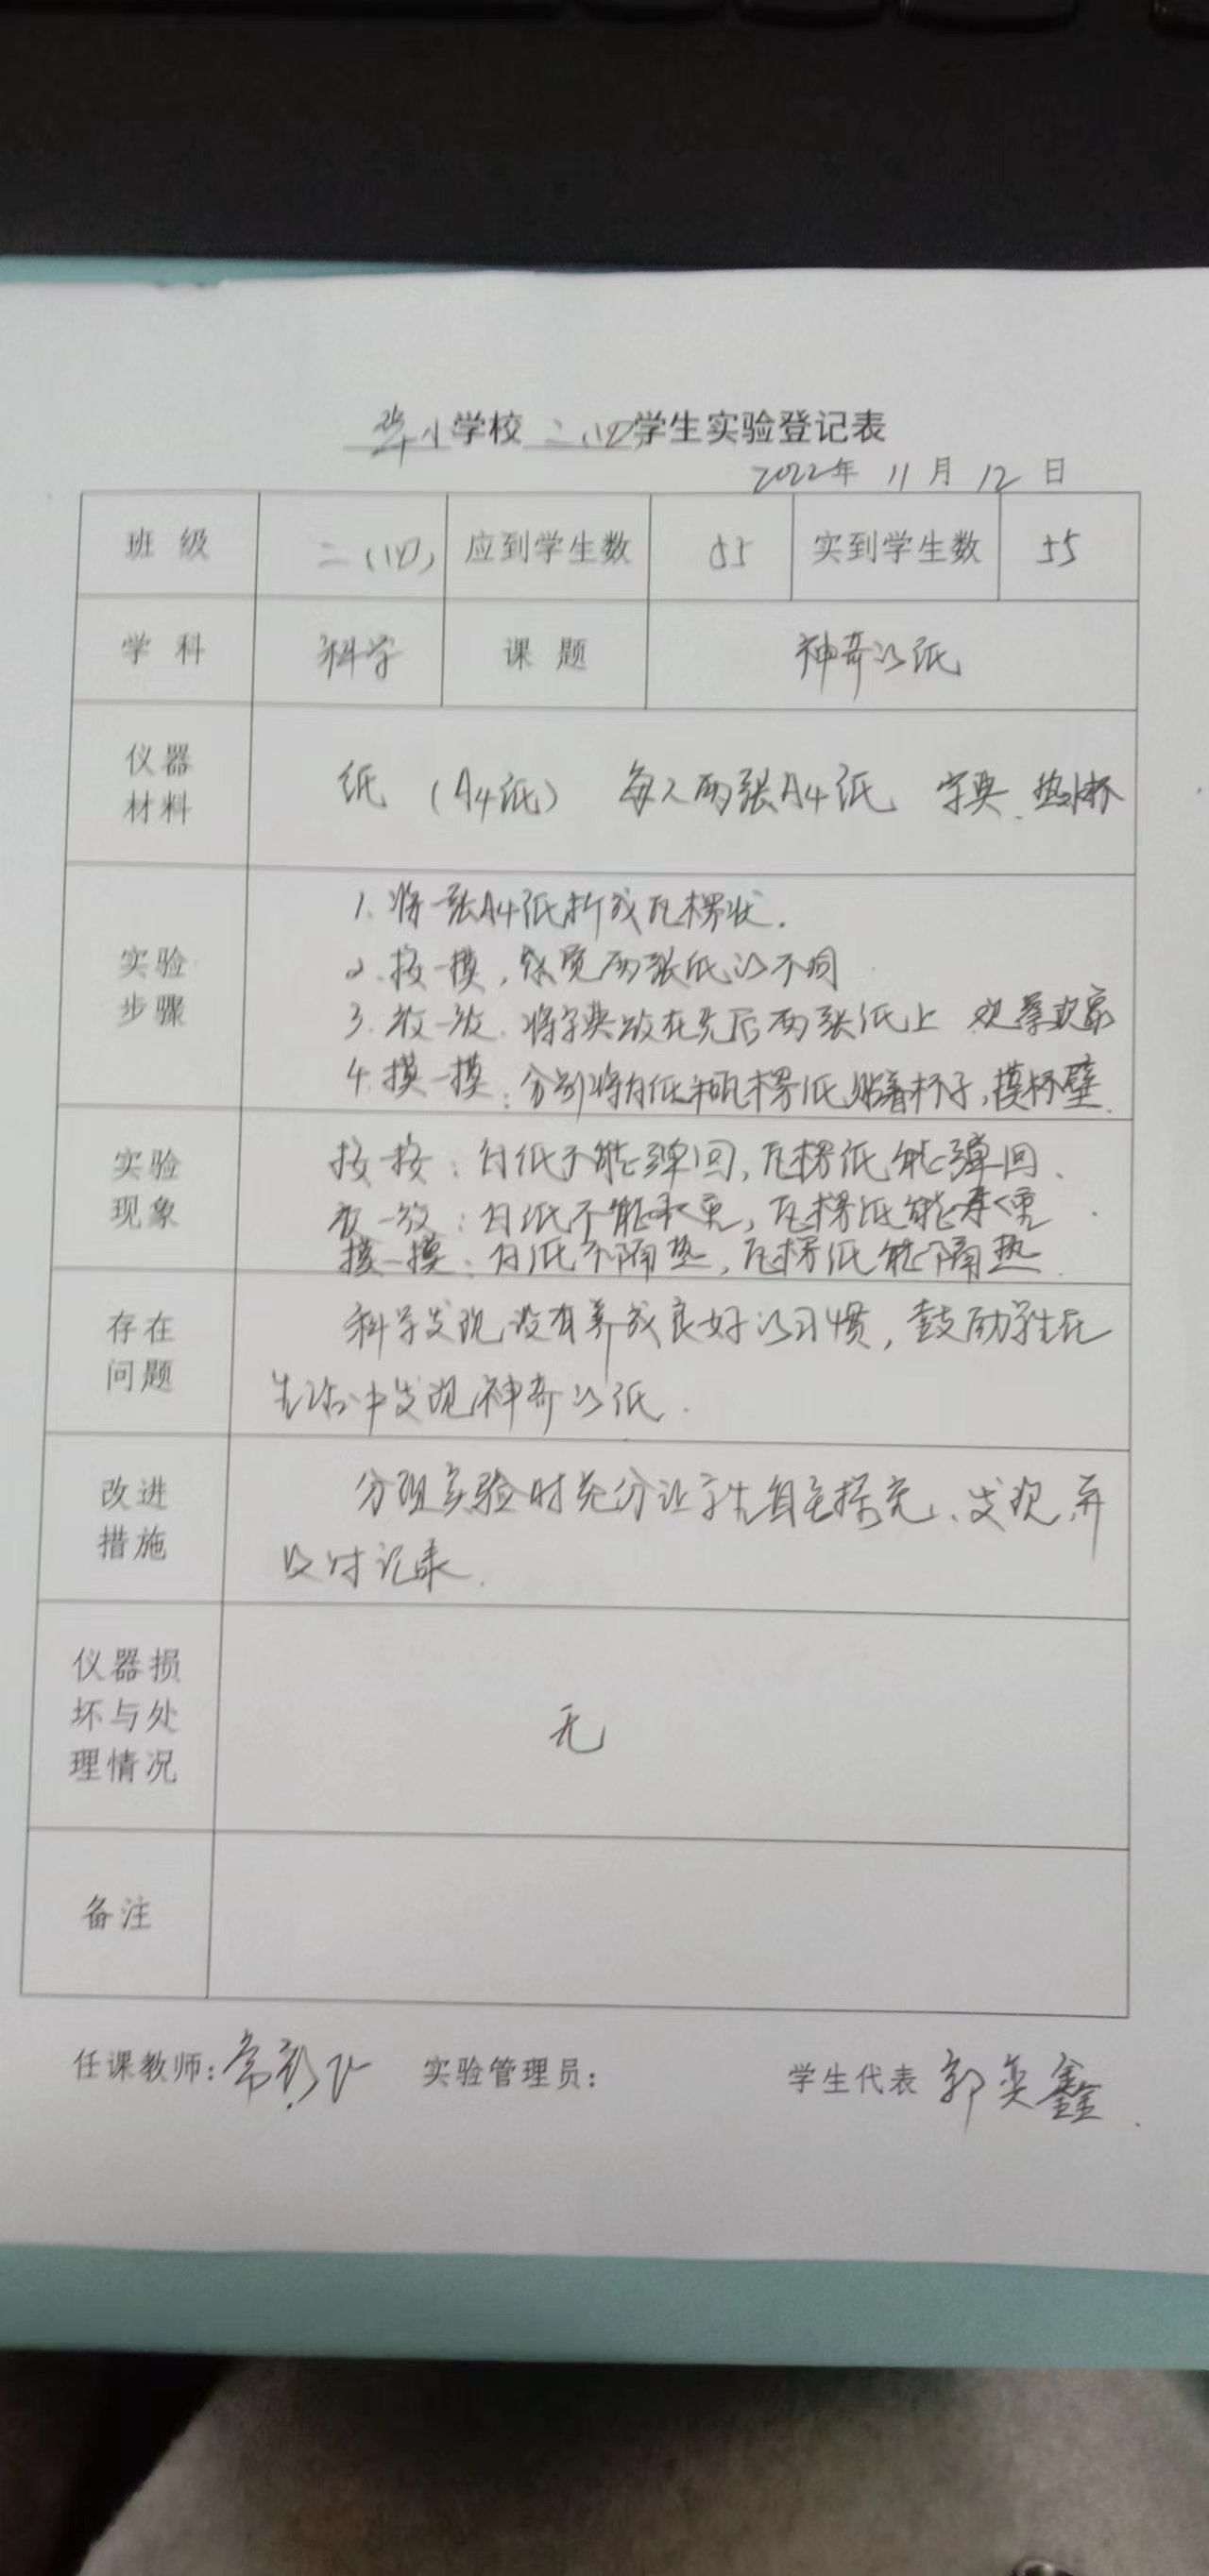 华小学校 二(四)学生实验登记表
2022年 11月 12日
班 级 二(四) 应到学生数 55 实到学生数 55
学 科 科学 课 题 神奇的纸
仪器
材料
纸 (A4纸) 每人两张A4纸 字典、热水杯
实验
步骤
1. 将一张A4纸折成瓦楞状.
2. 按一摸,感觉两张纸的不同
3. 放一放. 将字典放在先后两张纸上 观察现象
4. 摸一摸: 分别将白纸和瓦楞纸贴着杯子,摸杯壁.
实验
现象
按一按: 白纸不能弹回,瓦楞纸能弹回.
放一放: 白纸不能承重,瓦楞纸能承重.
摸一摸: 白纸不隔热,瓦楞纸能隔热.
存在
问题
科学发现没有养成良好的习惯,鼓励学生在
生活中发现神奇的纸.
改进
措施
分组实验时充分让学生自主探究、发现,并
及时记录.
仪器损
坏与处
理情况
无
备注
任课教师: 常 实验管理员: 学生代表 郭奕鑫